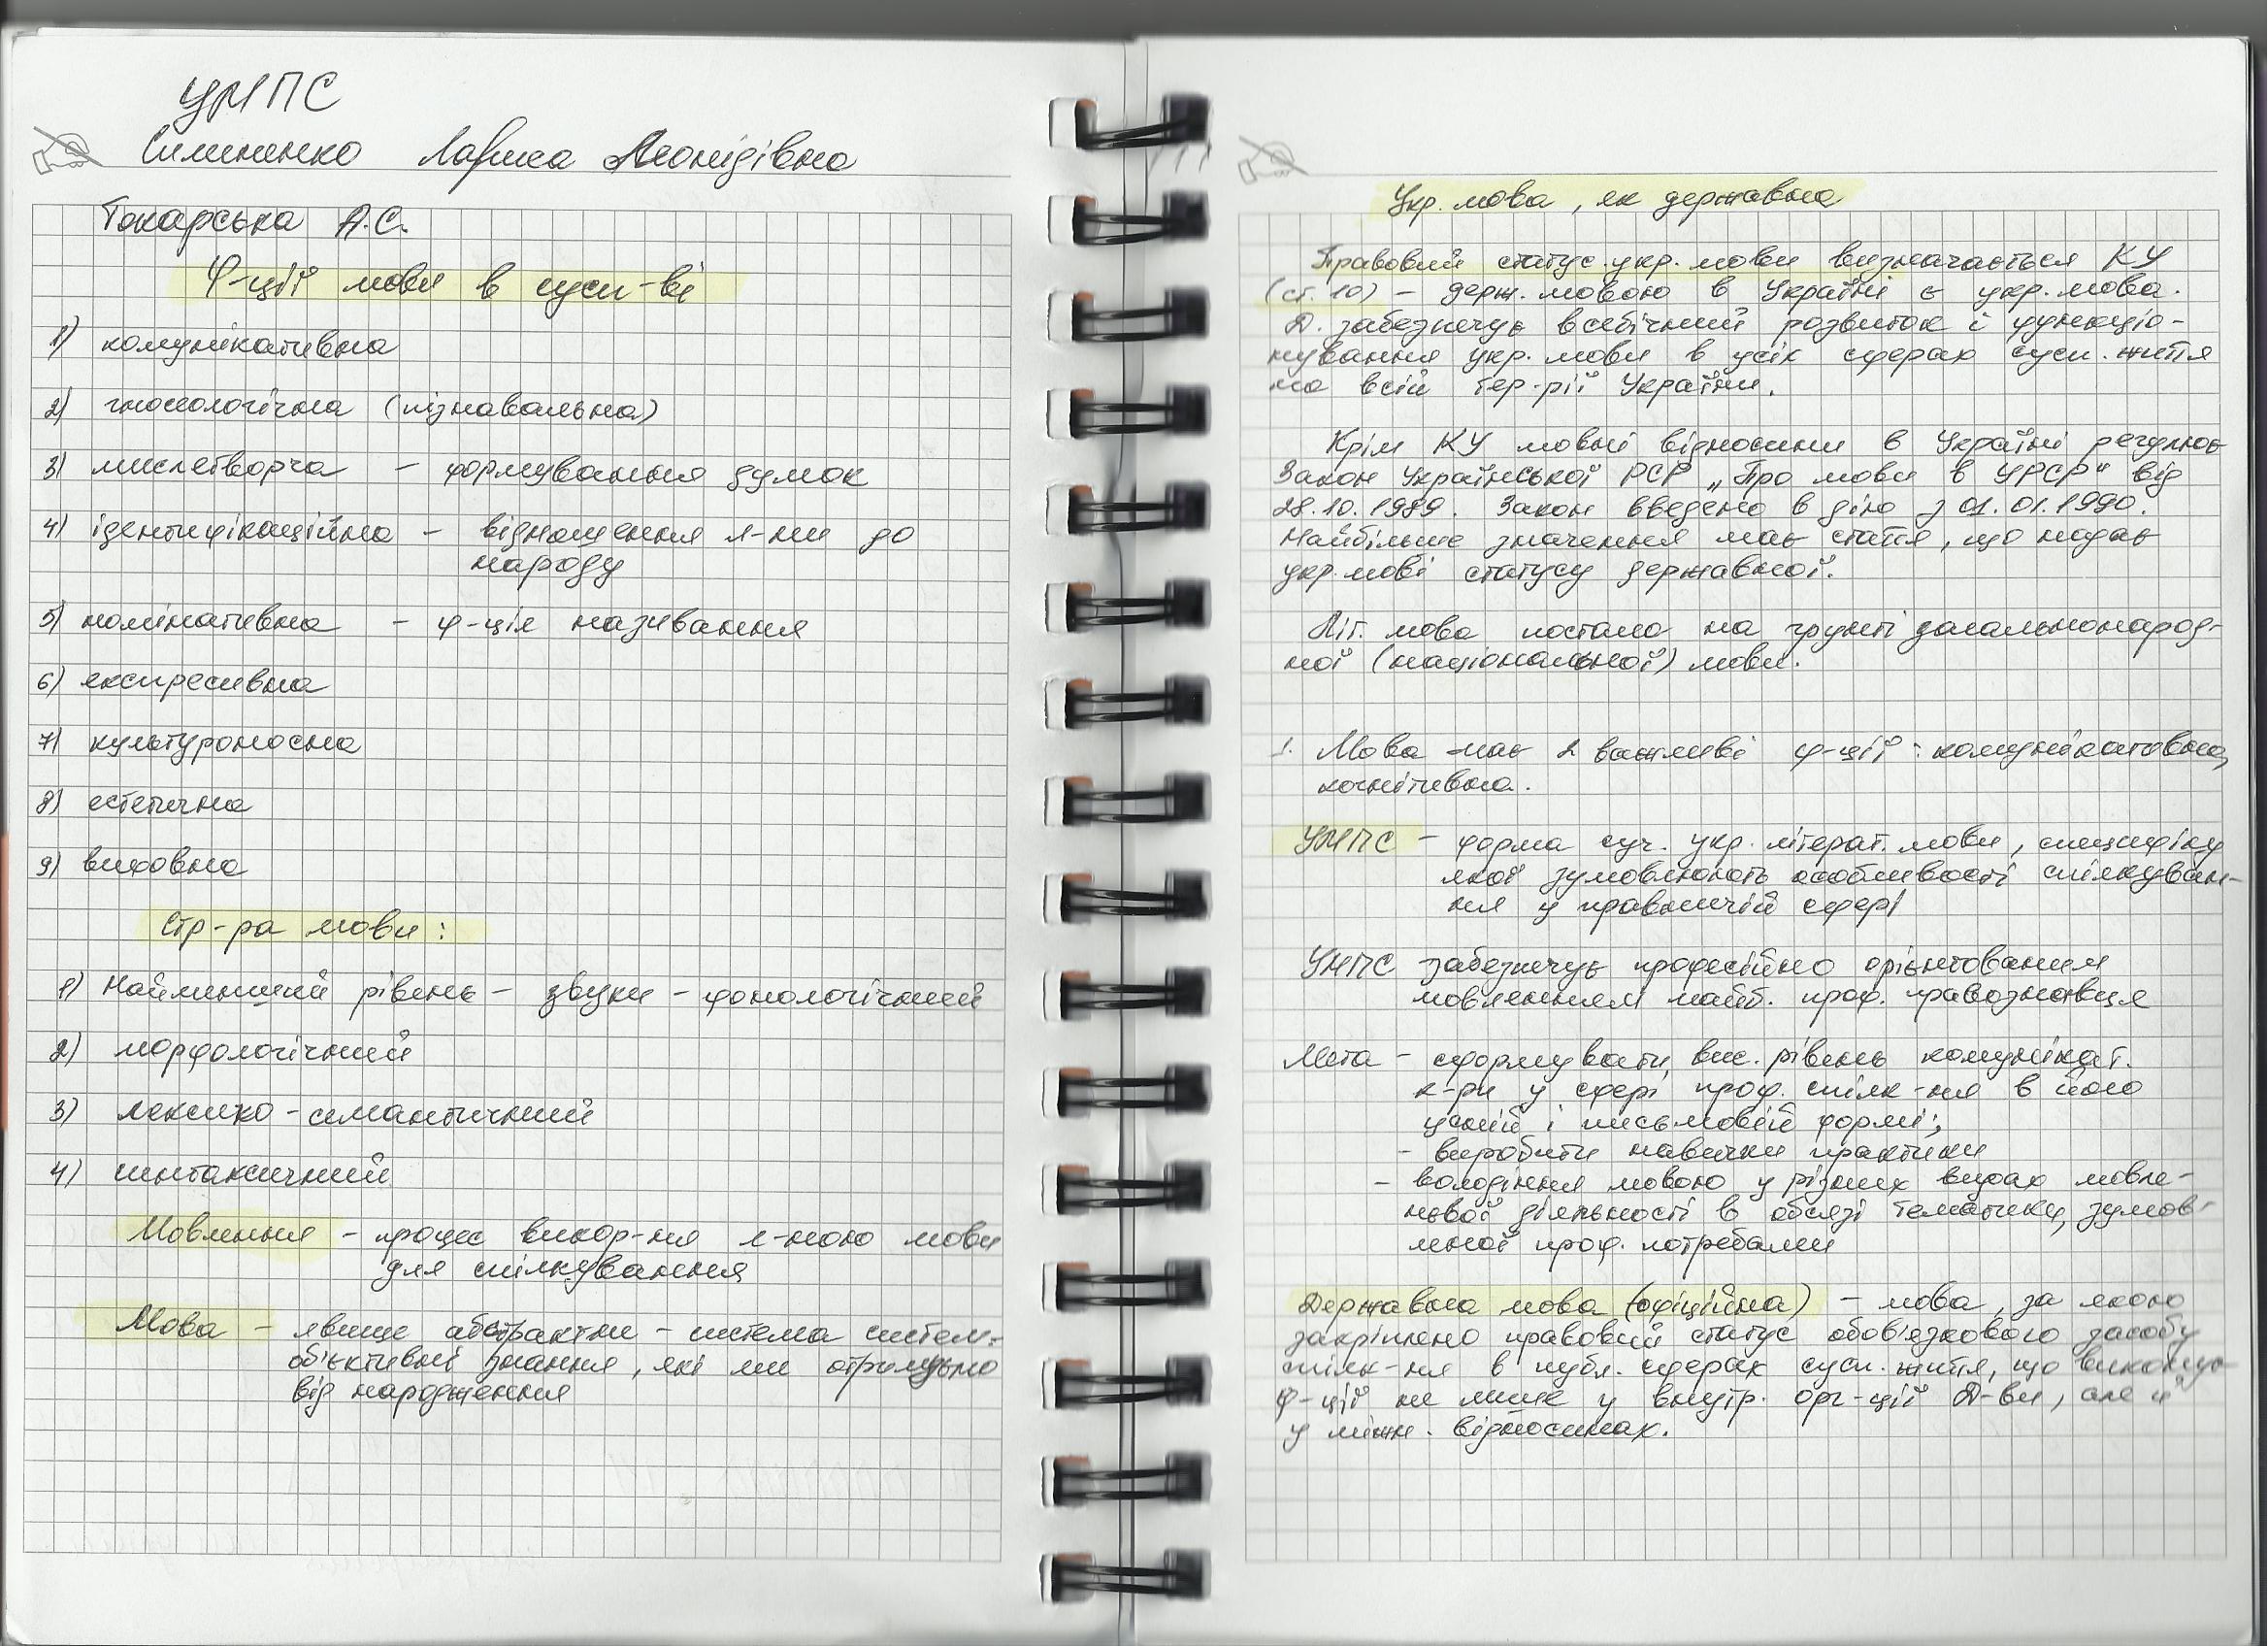 УМПС
Симоненко Лариса Леонідівна
Токарська А.С.
Ф-ції мови в сусп-ві
1) комунікативна
2) гносеологічна (пізнавальна)
3) мислетворча – формування думок
4) ідентифікаційна – відношення л-ни до
народу
5) номінативна – ф-ція називання
6) експресивна
7) культуроносна
8) естетична
9) виховна
Стр-ра мови:
1) Найменший рівень – звуки – фонологічний
2) морфологічний
3) лексико-семантичний
4) синтаксичний
Мовлення – процес викор-ня л-ною мови
для спілкування
Мова – явище абстрактне – система систем.
об'єктивні знання, які ми отримуємо
від народження
Укр. мова, як державна
Правовий статус укр. мови визначається КУ
(ст. 10) – держ. мовою в Україні є укр. мова.
Д. забезпечує всебічний розвиток і функціо-
нування укр. мови в усіх сферах сусп. життя
на всій тер-рії України.
Крім КУ мовні відносини в Україні регулює
Закон Української РСР „Про мови в УРСР" від
28.10.1989. Закон введено в дію з 01.01.1990.
Найбільше значення має стаття, що надає
укр. мові статусу державної.
Літ. мова постала на ґрунті загальнонарод-
ної (національної) мови.
1. Мова має 2 важливі ф-ції: комунікативна,
когнітивна.
УМПС – форма суч. укр. літерат. мови, специфіку
якої зумовлюють особливості спілкуван-
ня у правничій сфері
УМПС забезпечує професійно орієнтованим
мовленням майб. проф. правознавця
Мета – сформувати вис. рівень комунікат.
к-ри у сфері проф. спілк-ня в його
усній і письмовій формі;
– виробити навички практики
– володіння мовою у різних видах мовле-
нєвої діяльності в обсязі тематики, зумов-
леної проф. потребами
Державна мова (офіційна) – мова, за якою
закріплено правовий статус обов'язкового засобу
спілк-ня в публ. сферах сусп. життя, що виконує
ф-ції не лише у внутр. орг-ції Д-ви, але й
у міжн. відносинах.